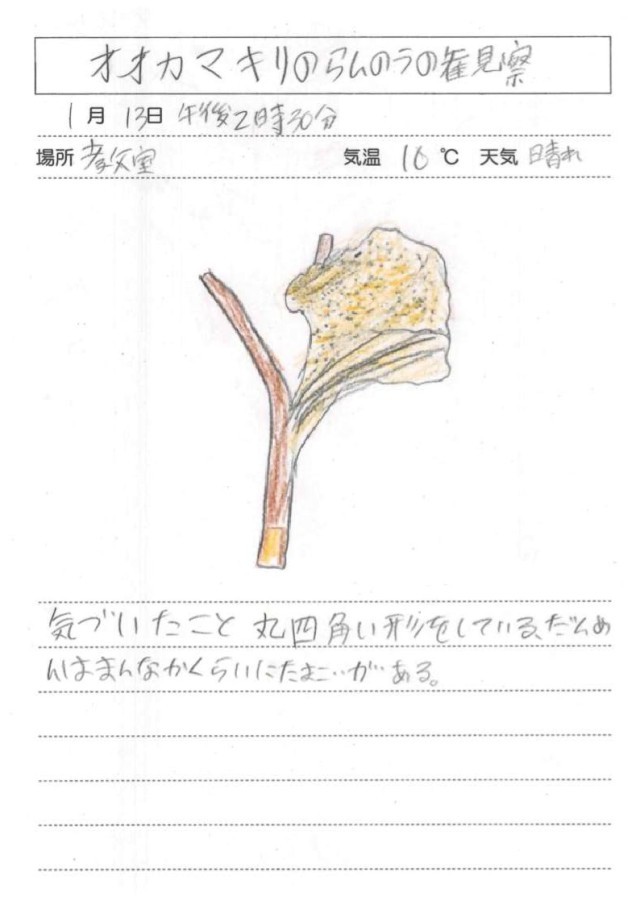 オオカマキリのらんのうの観察
1月 13日 午後2時30分
場所 教室 気温 10℃ 天気 晴れ
気づいたこと 丸四角い形をしている、だんめ
んはまんなかくらいにたまごがある。